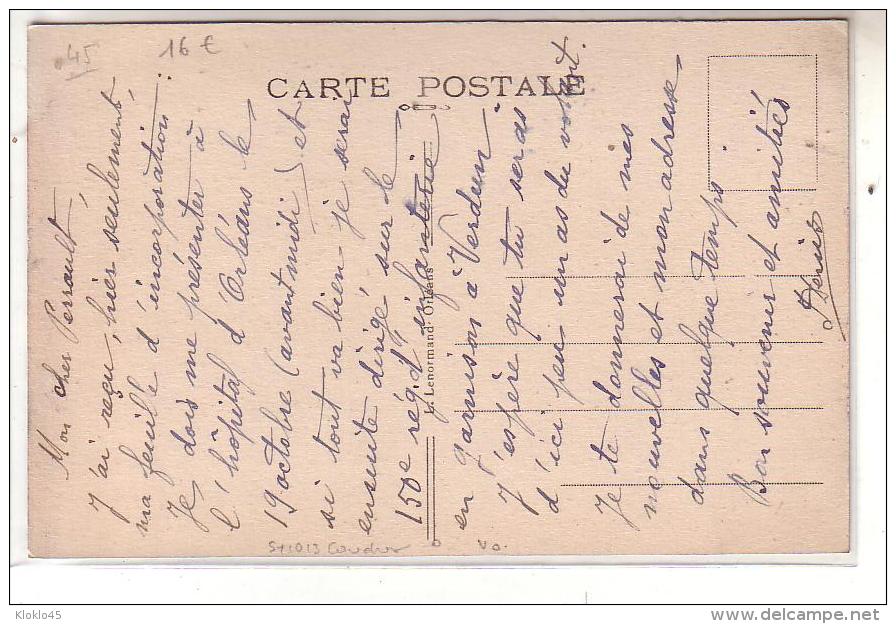 45
16 €
CARTE POSTALE
Mon cher Perrault,
J'ai reçu, hier seulement,
ma feuille d'incorporation :
Je dois me présenter à
l'hôpital d'Orléans le
19 octobre (avant midi) et
si tout va bien je serai
ensuite dirigé sur le
150e rég. d'infanterie
en garnison à Verdun
J'espère que tu seras
d'ici peu un as du volant.
Je te donnerai de mes
nouvelles et mon adresse
dans quelque temps
Bon souvenir et amitiés
L. Lenormand Orléans
Kloklo45
delcampe.net